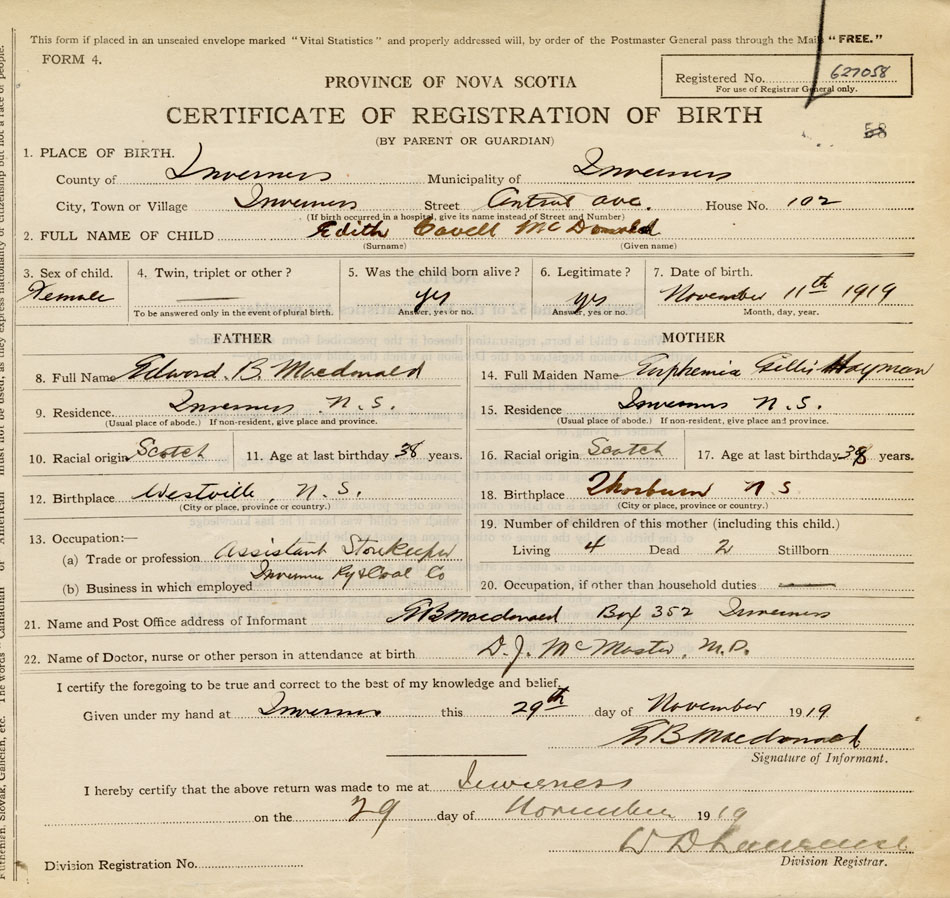 This form if placed in an unsealed envelope marked "Vital Statistics" and properly addressed will, by order of the Postmaster General pass through the Mail "FREE."
FORM 4.
Registered No. 627058
For use of Registrar General only.
PROVINCE OF NOVA SCOTIA
CERTIFICATE OF REGISTRATION OF BIRTH
58
(BY PARENT OR GUARDIAN)
1. PLACE OF BIRTH.
County of Inverness Municipality of Inverness
City, Town or Village Inverness Street Central Ave. House No. 102
(If birth occurred in a hospital, give its name instead of Street and Number)
2. FULL NAME OF CHILD Edith Cavell McDonald
(Surname) (Given name)
3. Sex of child. 4. Twin, triplet or other? 5. Was the child born alive? 6. Legitimate? 7. Date of birth.
Female yes yes November 11th 1919
To be answered only in the event of plural birth. Answer, yes or no. Answer, yes or no. Month, day, year.
FATHER
8. Full Name Edward. B. Macdonald
9. Residence. Inverness N.S.
(Usual place of abode.) If non-resident, give place and province.
10. Racial origin Scotch 11. Age at last birthday 38 years.
12. Birthplace Westville, N.S.
(City or place, province or country.)
13. Occupation:—
(a) Trade or profession Assistant Storekeeper
(b) Business in which employed Inverness Ry & Coal Co
MOTHER
14. Full Maiden Name Euphemia Gillis Hayman
15. Residence Inverness N.S.
(Usual place of abode.) If non-resident, give place and province.
16. Racial origin Scotch 17. Age at last birthday 38 years.
18. Birthplace Thorburn N S
(City or place, province or country.)
19. Number of children of this mother (including this child.)
Living 4 Dead 2 Stillborn
20. Occupation, if other than household duties
21. Name and Post Office address of Informant EB Macdonald Box 352 Inverness
22. Name of Doctor, nurse or other person in attendance at birth D.J. McMaster, M.D.
I certify the foregoing to be true and correct to the best of my knowledge and belief.
Given under my hand at Inverness this 29th day of November 1919.
EB Macdonald
Signature of Informant.
I hereby certify that the above return was made to me at Inverness
on the 29 day of November 1919
W D
Division Registrar.
Division Registration No.